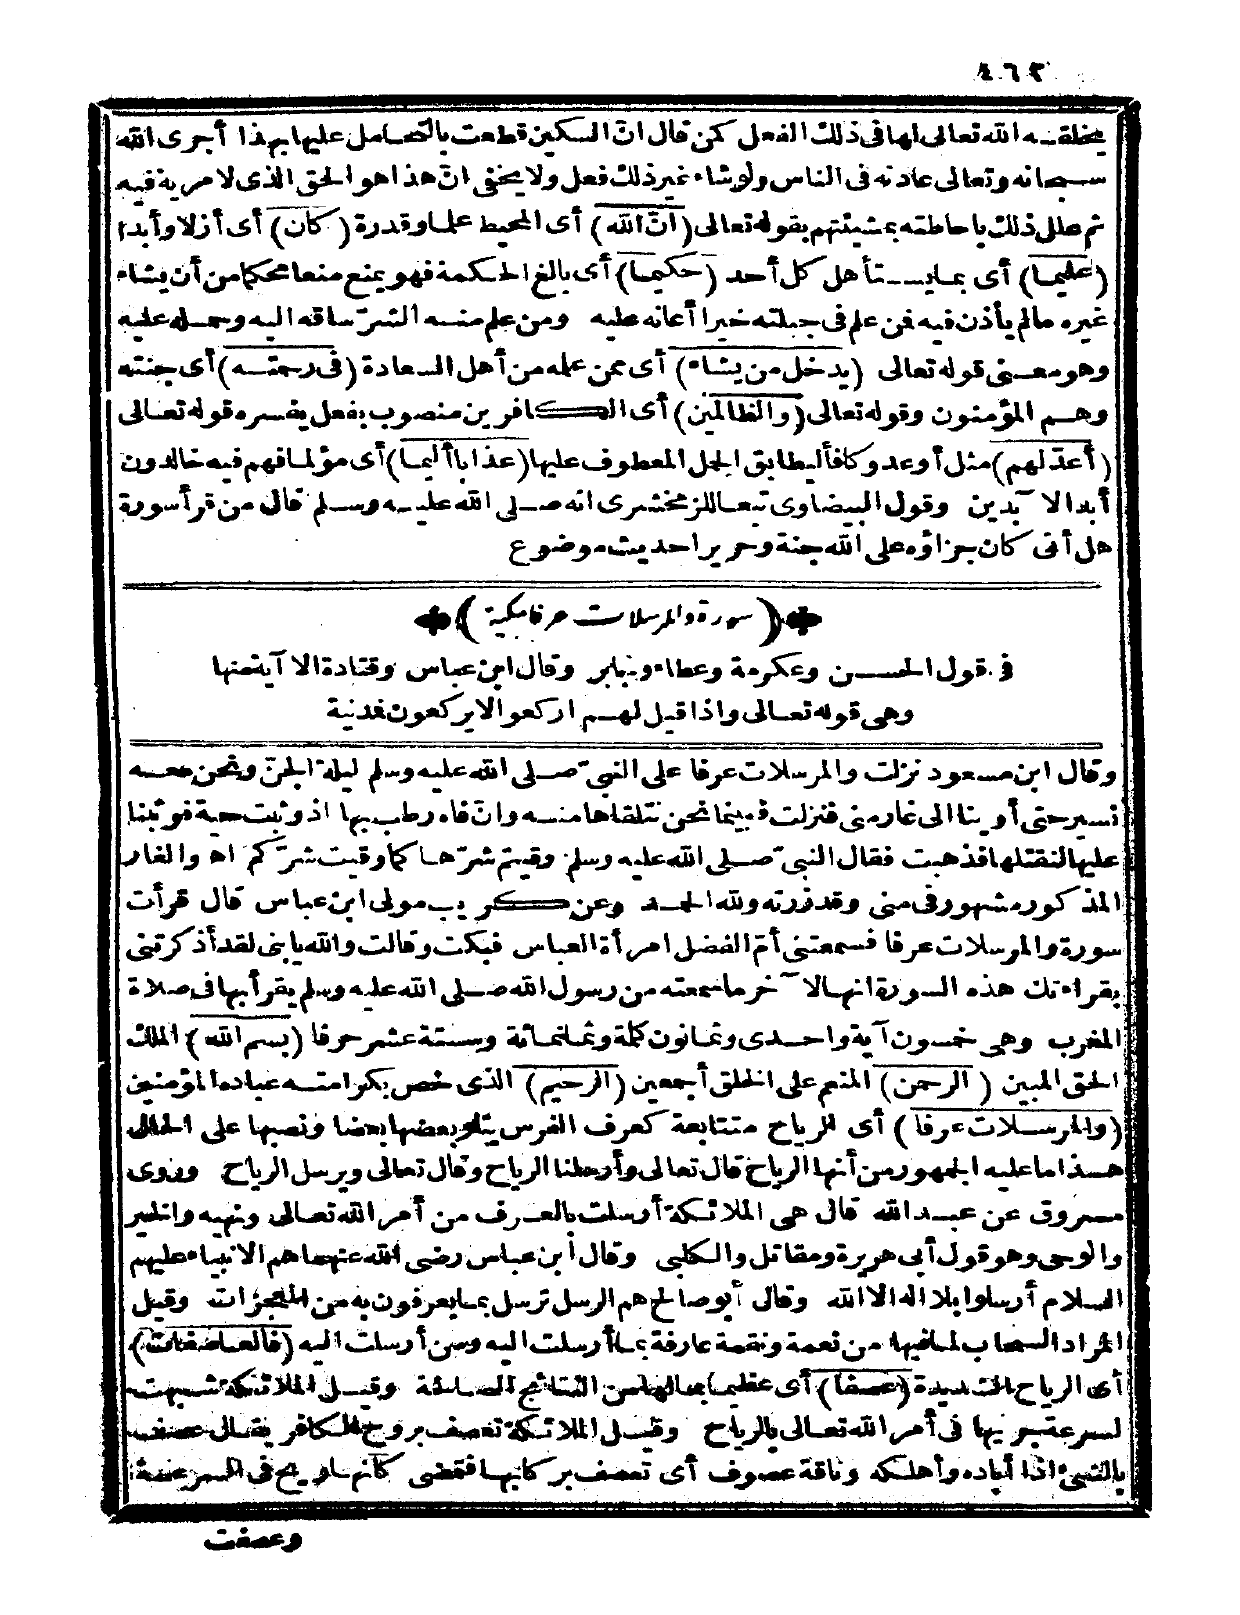 ٤٦٢
يخلقه الله تعالى لها فى ذلك الفعل كمن قال انّ السكين قطعت بالتحامل عليها بهذا أجرى الله
سبحانه وتعالى عادته فى الناس ولو شاء غير ذلك فعل ولا يخفى انّ هذا هو الحق الذى لا مرية فيه
ثم علل ذلك باحاطته بمشيئتهم بقوله تعالى (انّ الله) أى المحيط علما وقدرة (كان) أى أزلا وأبدا
(عليما) أى بما يستأهل كل أحد (حكيما) أى بالغ الحكمة فهو يمنع منعا محكما من أن يشاء
غيره ما لم يأذن فيه فمن علم فى جبلته خيرا أعانه عليه ومن علم منه الشرّ ساقه اليه وحمله عليه
وهو معنى قوله تعالى (يدخل من يشاء) أى ممن علمه من أهل السعادة (فى رحمته) أى جنته
وهم المؤمنون وقوله تعالى (والظالمين) أى الكافرين منصوب بفعل يفسره قوله تعالى
(أعدّ لهم) مثل أوعد وكافأ ليطابق الجمل المعطوف عليها (عذابا أليما) أى مؤلما فهم فيه خالدون
أبد الا بدين وقول البيضاوى تبعا للزمخشرى انه صلى الله عليه وسلم قال من قرأ سورة
هل أتى كان جزاؤه على الله جنة وحريرا حديث موضوع
(سورة والمرسلات عرفا مكية)
فى قول الحسن وعكرمة وعطاء وجابر وقال ابن عباس وقتادة الا آية منها
وهى قوله تعالى واذا قيل لهم اركعوا لا يركعون فدنية
وقال ابن مسعود نزلت والمرسلات عرفا على النبىّ صلى الله عليه وسلم ليلة الجنّ ونحن معه
نسير حتى أوينا الى غار منى فنزلت فبينما نحن نتلقاها منه وانّ فاه رطب بها اذ وثبت حية فوثبنا
عليها لنقتلها فذهبت فقال النبىّ صلى الله عليه وسلم وقيتم شرّها كما وقيت شرّكم اه والغار
المذكور مشهور فى منى وقد زرته ولله الحمد وعن كريب مولى ابن عباس قال قرأت
سورة والمرسلات عرفا فسمعتنى أمّ الفضل امرأة العباس فبكت وقالت والله يا بنى لقد أذكرتنى
بقراءتك هذه السورة انها لا خر ما سمعته من رسول الله صلى الله عليه وسلم يقرأ بها فى صلاة
المغرب وهى خمسون آية واحدى وثمانون كلمة وثمانمائة وستة عشر حرفا (بسم الله) الملك
الحق المبين (الرحمن) المنعم على الخلق أجمعين (الرحيم) الذى خص بكرامته عباده المؤمنين
(والمرسلات عرفا) أى الرياح متتابعة كعرف الفرس يتلو بعضها بعضا ونصبها على الحال
هذا ما عليه الجمهور من أنها الرياح قال تعالى وأرسلنا الرياح وقال تعالى ويرسل الرياح وروى
مسروق عن عبد الله قال هى الملائكة أرسلت بالعرف من أمر الله تعالى ونهيه والخبر
والوحى وهو قول أبى هريرة ومقاتل والكلبى وقال ابن عباس رضى الله عنهما هم الانبياء عليهم
السلام أرسلوا بلا اله الا الله وقال أبو صالح هم الرسل ترسل بما يعرفون به من المعجزات وقيل
المراد السحاب لما فيها من نعمة ونقمة عارفة بما أرسلت اليه ومن أرسلت اليه (فالعاصفات)
أى الرياح الشديدة (عصفا) أى عظيما بما لها من النتائج الصالحة وقيل الملائكة شبهت
لسرعة جريها فى أمر الله تعالى بالرياح وقيل الملائكة تعصف بروح الكافر يقال عصف
بالشئ اذا أباده وأهلكه وناقة عصوف أى تعصف براكبها فتمضى كأنها ريح فى السرعة
وعصفت